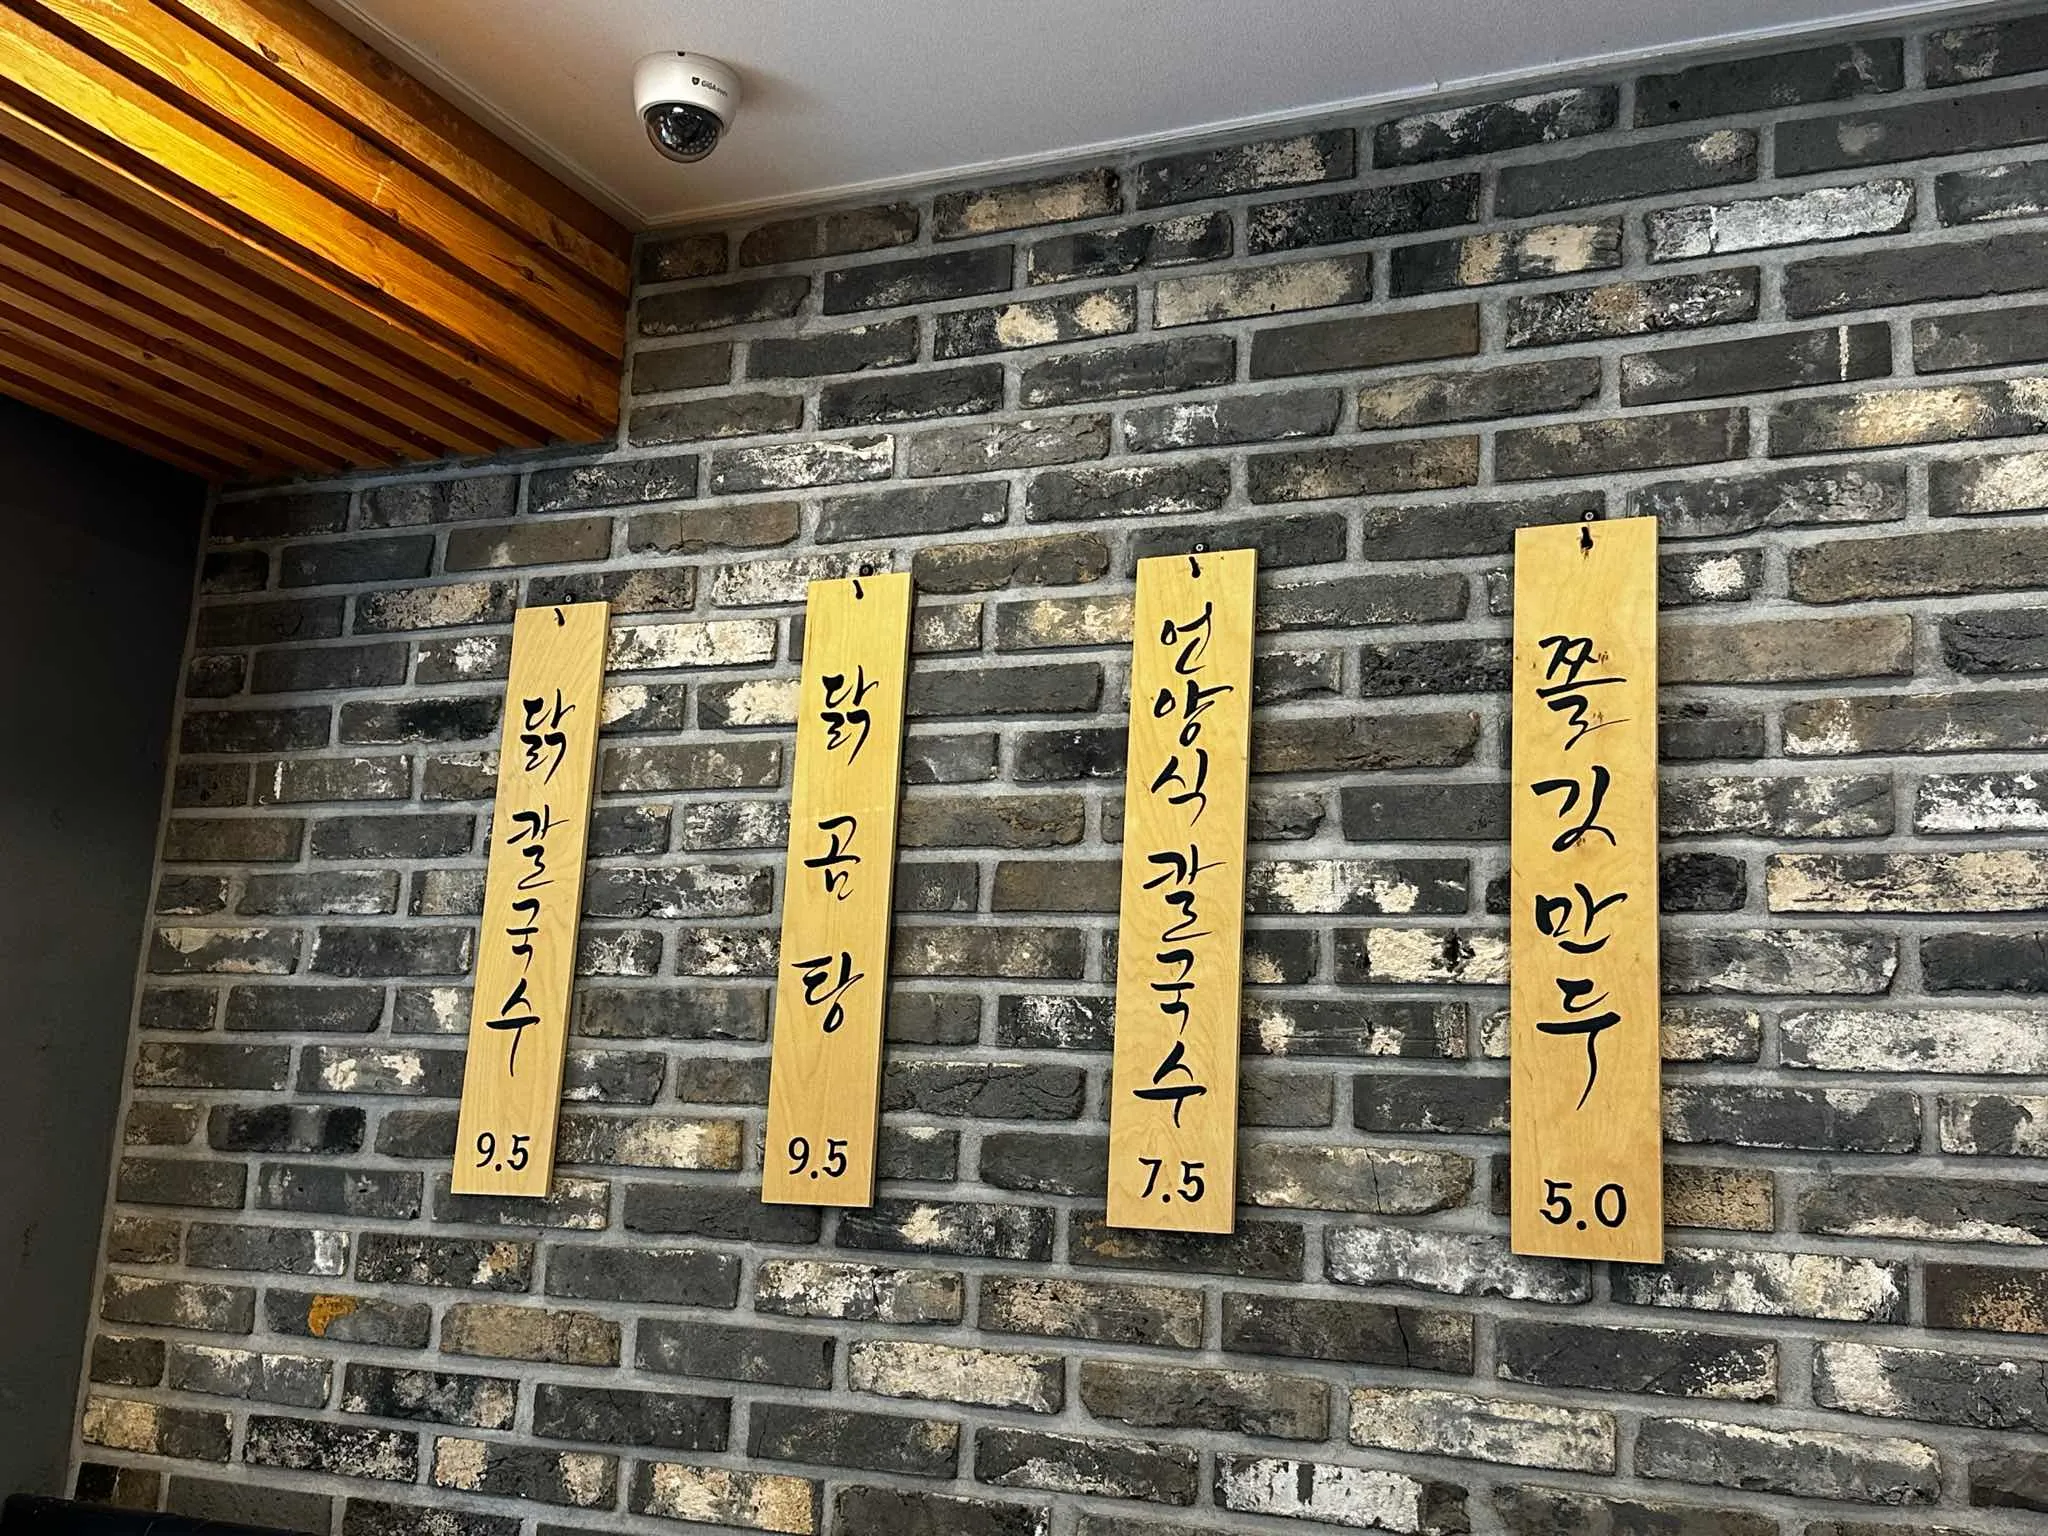 GiGAeyes
닭칼국수
9.5
닭곰탕
9.5
언양식칼국수
7.5
쫄깃만두
5.0